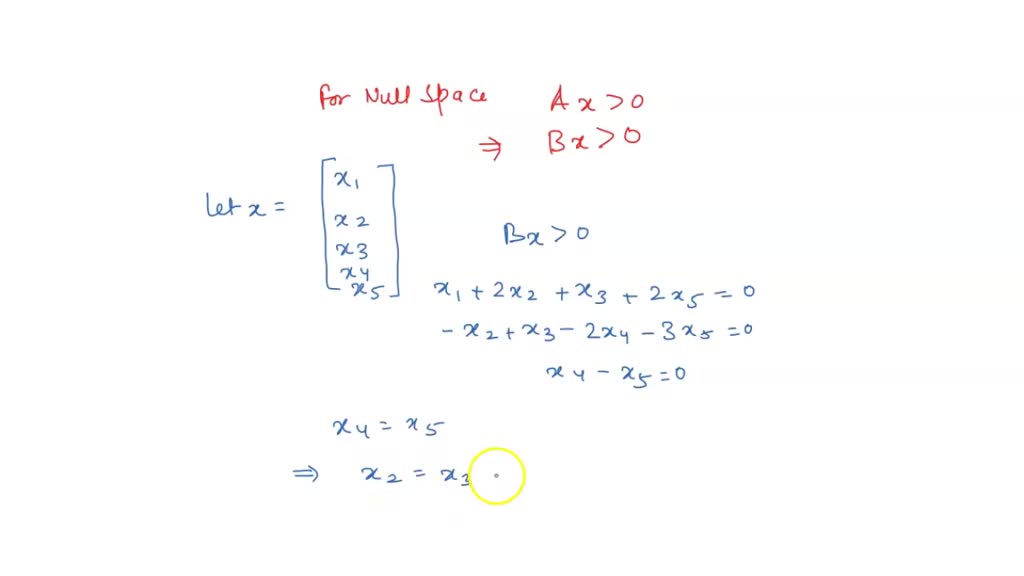 For Null Space Ax > 0
⇒ Bx > 0
let x = [x1 x2 x3 x4 x5]
Bx > 0
x1 + 2x2 + x3 + 2x5 = 0
- x2 + x3 - 2x4 - 3x5 = 0
x4 - x5 = 0
x4 = x5
⇒ x2 = x3